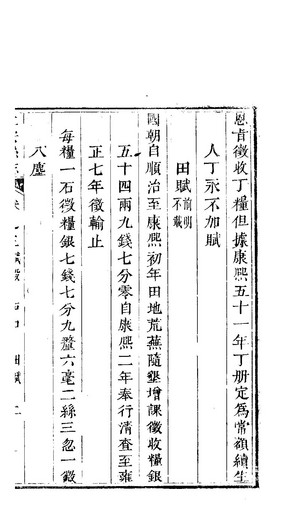 恩旨徵收丁糧但據康熙五十一年丁册定為常額續生
人丁永不加賦
田賦前明不載
國朝自順治至康熙初年田地荒蕪隨墾增課徵收糧銀
五十四兩九錢七分零自康熙二年奉行清查至雍
正七年徵輸止
每糧一石徵糧銀七錢七分九釐六毫二絲三忽一微
八塵